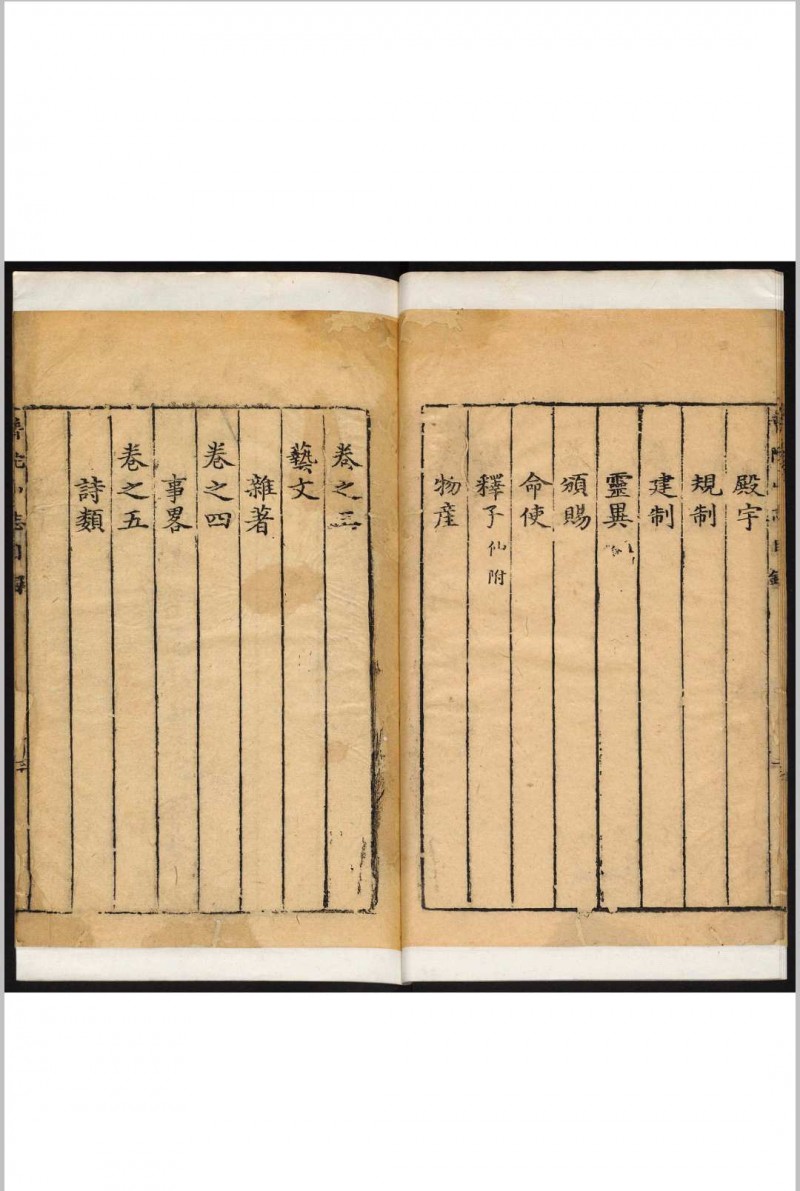 殿宇
規制
建制
靈異
頒賜
命使
釋子 仙附
物産
卷之三
藝文
雜著
卷之四
事畧
卷之五
詩類